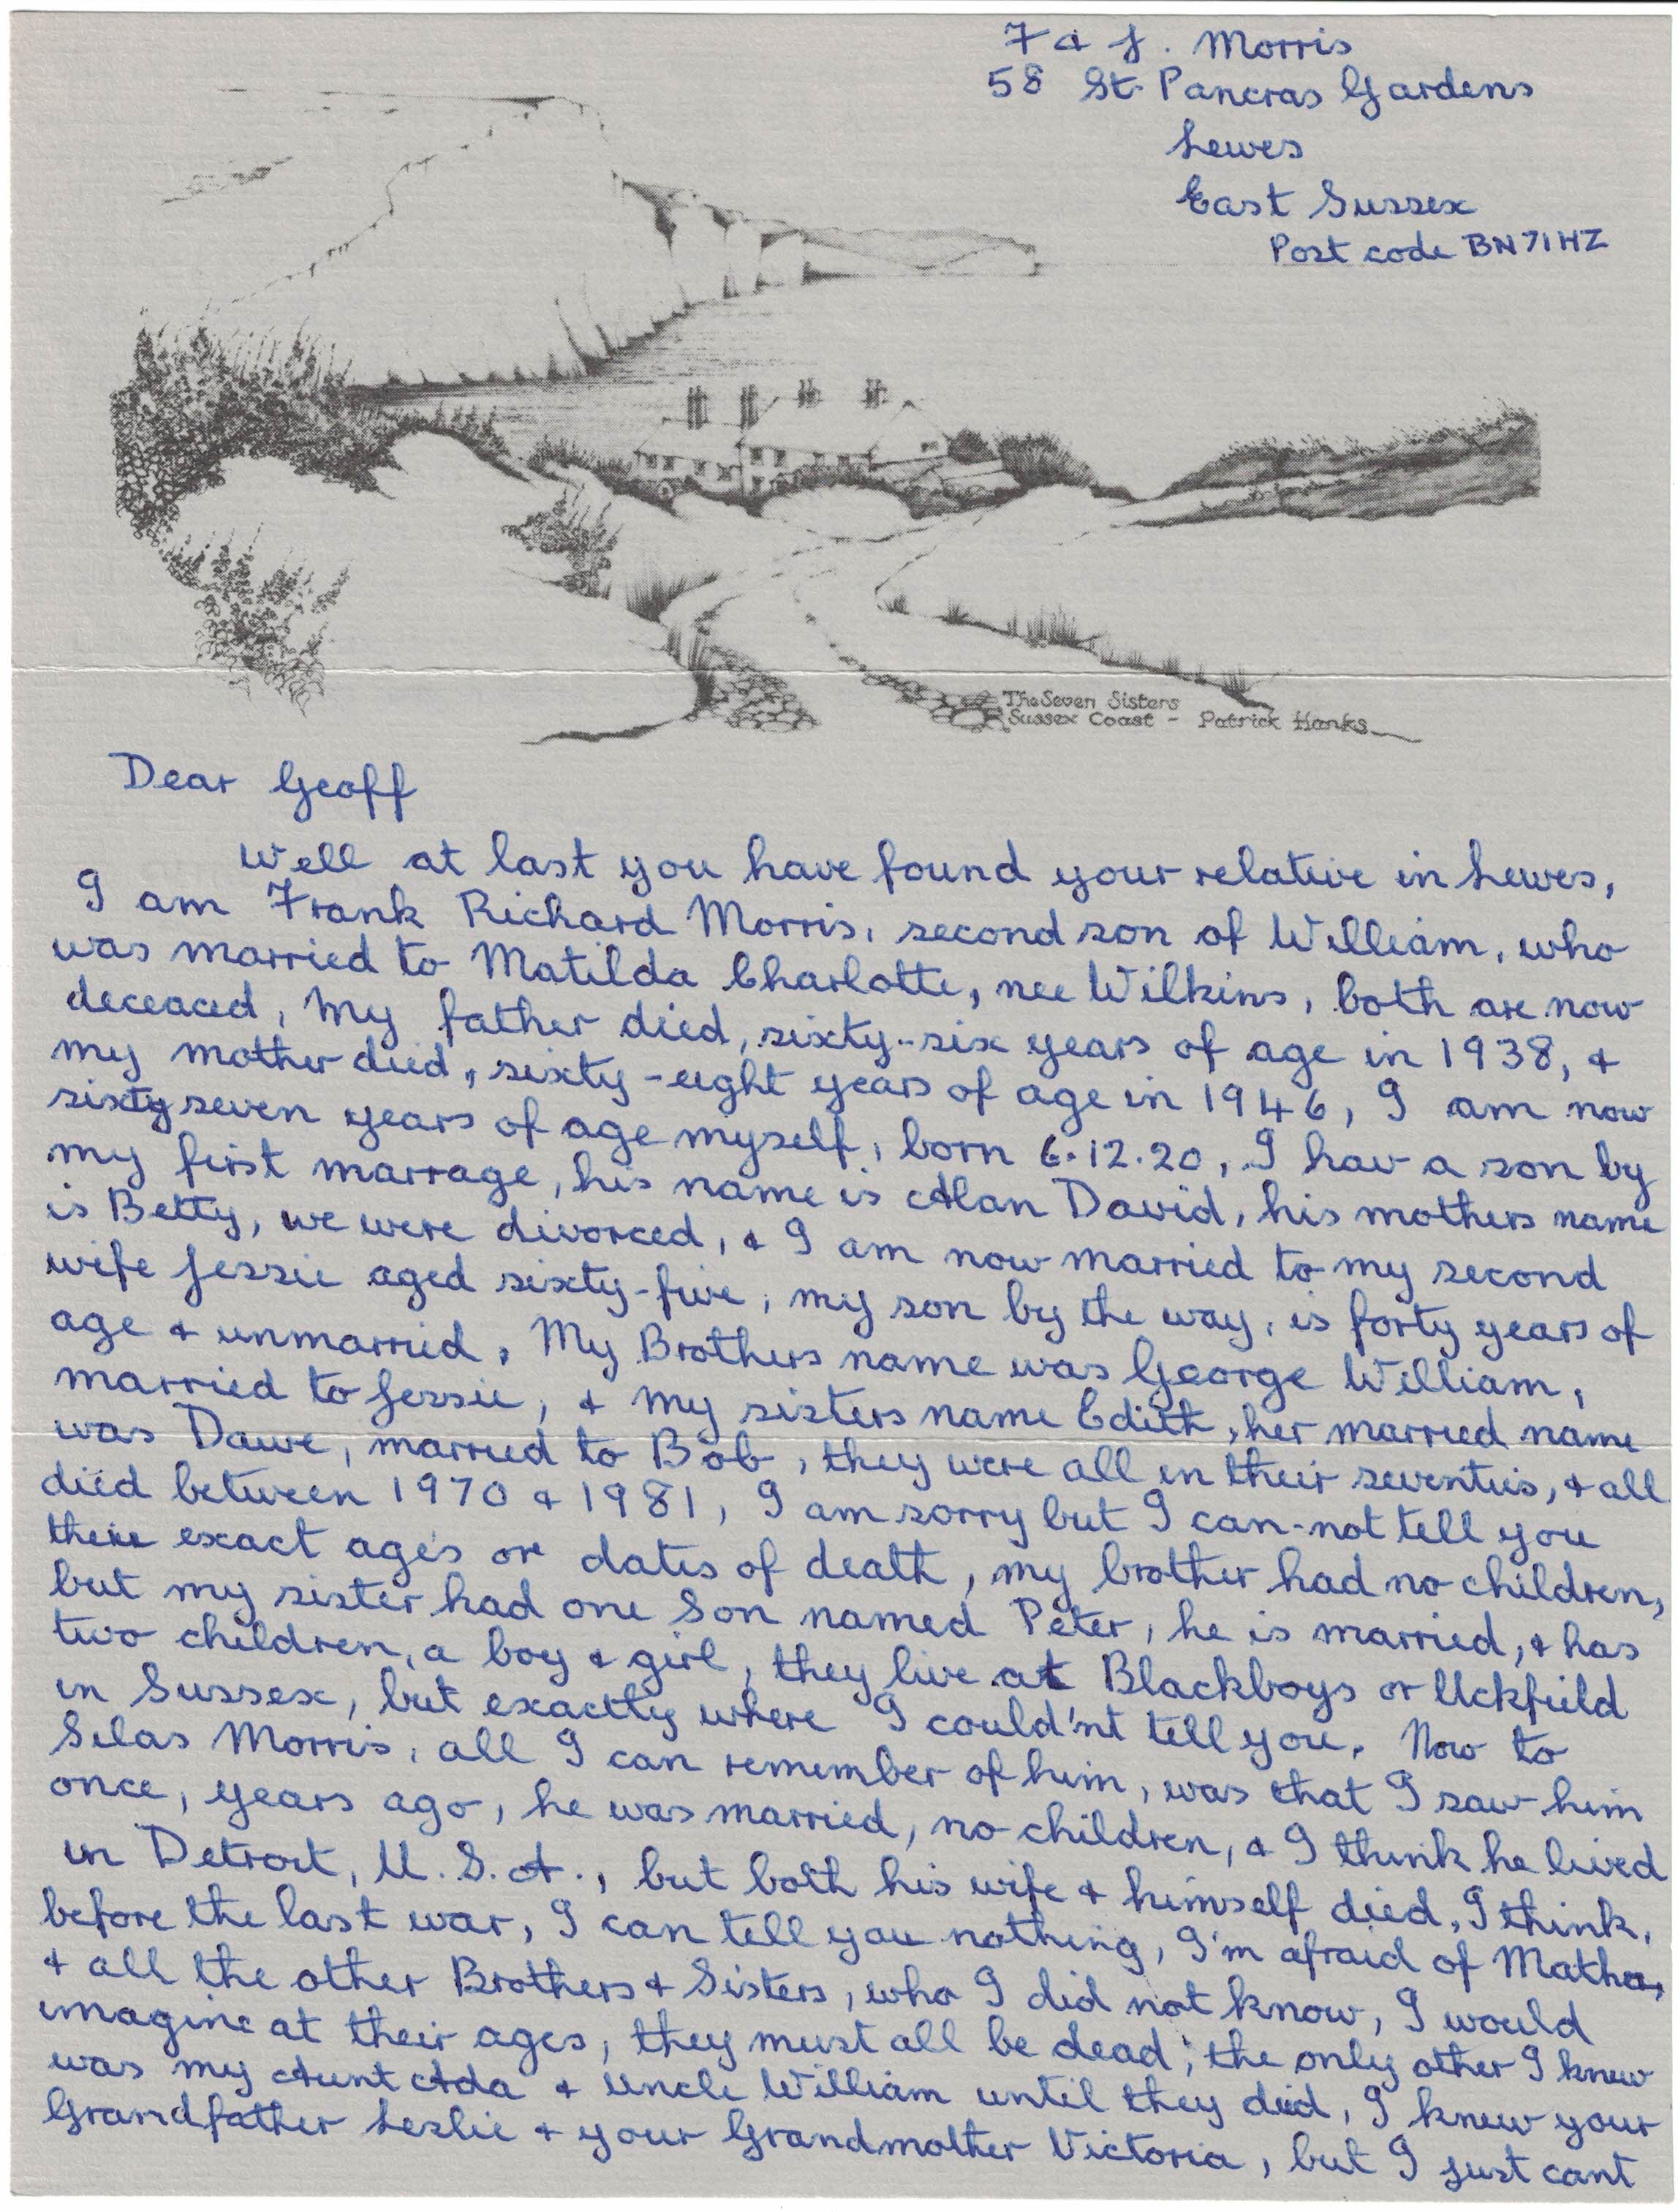 F & J. Morris
58 St. Pancras Gardens
Lewes
East Sussex
Post code BN71HZ
The Seven Sisters
Sussex Coast - Patrick Hanks
Dear Geoff
Well at last you have found your relative in Lewes,
I am Frank Richard Morris, second son of William, who
was married to Matilda Charlotte, nee Wilkins, both are now
deceaced, My father died, sixty-six years of age in 1938, &
my mother died, sixty-eight years of age in 1946, I am now
sixty seven years of age myself, born 6.12.20, I hav a son by
my first marrage, his name is Alan David, his mothers name
is Betty, we were divorced, & I am now married to my second
wife Jessie aged sixty-five, my son by the way, is forty years of
age & unmarried, My Brothers name was George William,
married to Jessie, & my sisters name Edith, her married name
was Dawe, married to Bob, they were all in their seventies, & all
died between 1970 & 1981, I am sorry but I can-not tell you
their exact ages or dates of death, my brother had no children,
but my sister had one Son named Peter, he is married, & has
two children, a boy & girl, they live at Blackboys or Uckfield
in Sussex, but exactly where I could'nt tell you. Now to
Silas Morris, all I can remember of him, was that I saw him
once, years ago, he was married, no children, & I think he lived
in Detroit, U.S.A., but both his wife & himself died, I think,
before the last war, I can tell you nothing, I'm afraid of Matha,
& all the other Brothers & Sisters, who I did not know, I would
imagine at their ages, they must all be dead; the only other I knew
was my Aunt Ada & Uncle William until they died, I knew your
Grandfather Leslie & your Grandmother Victoria, but I just cant